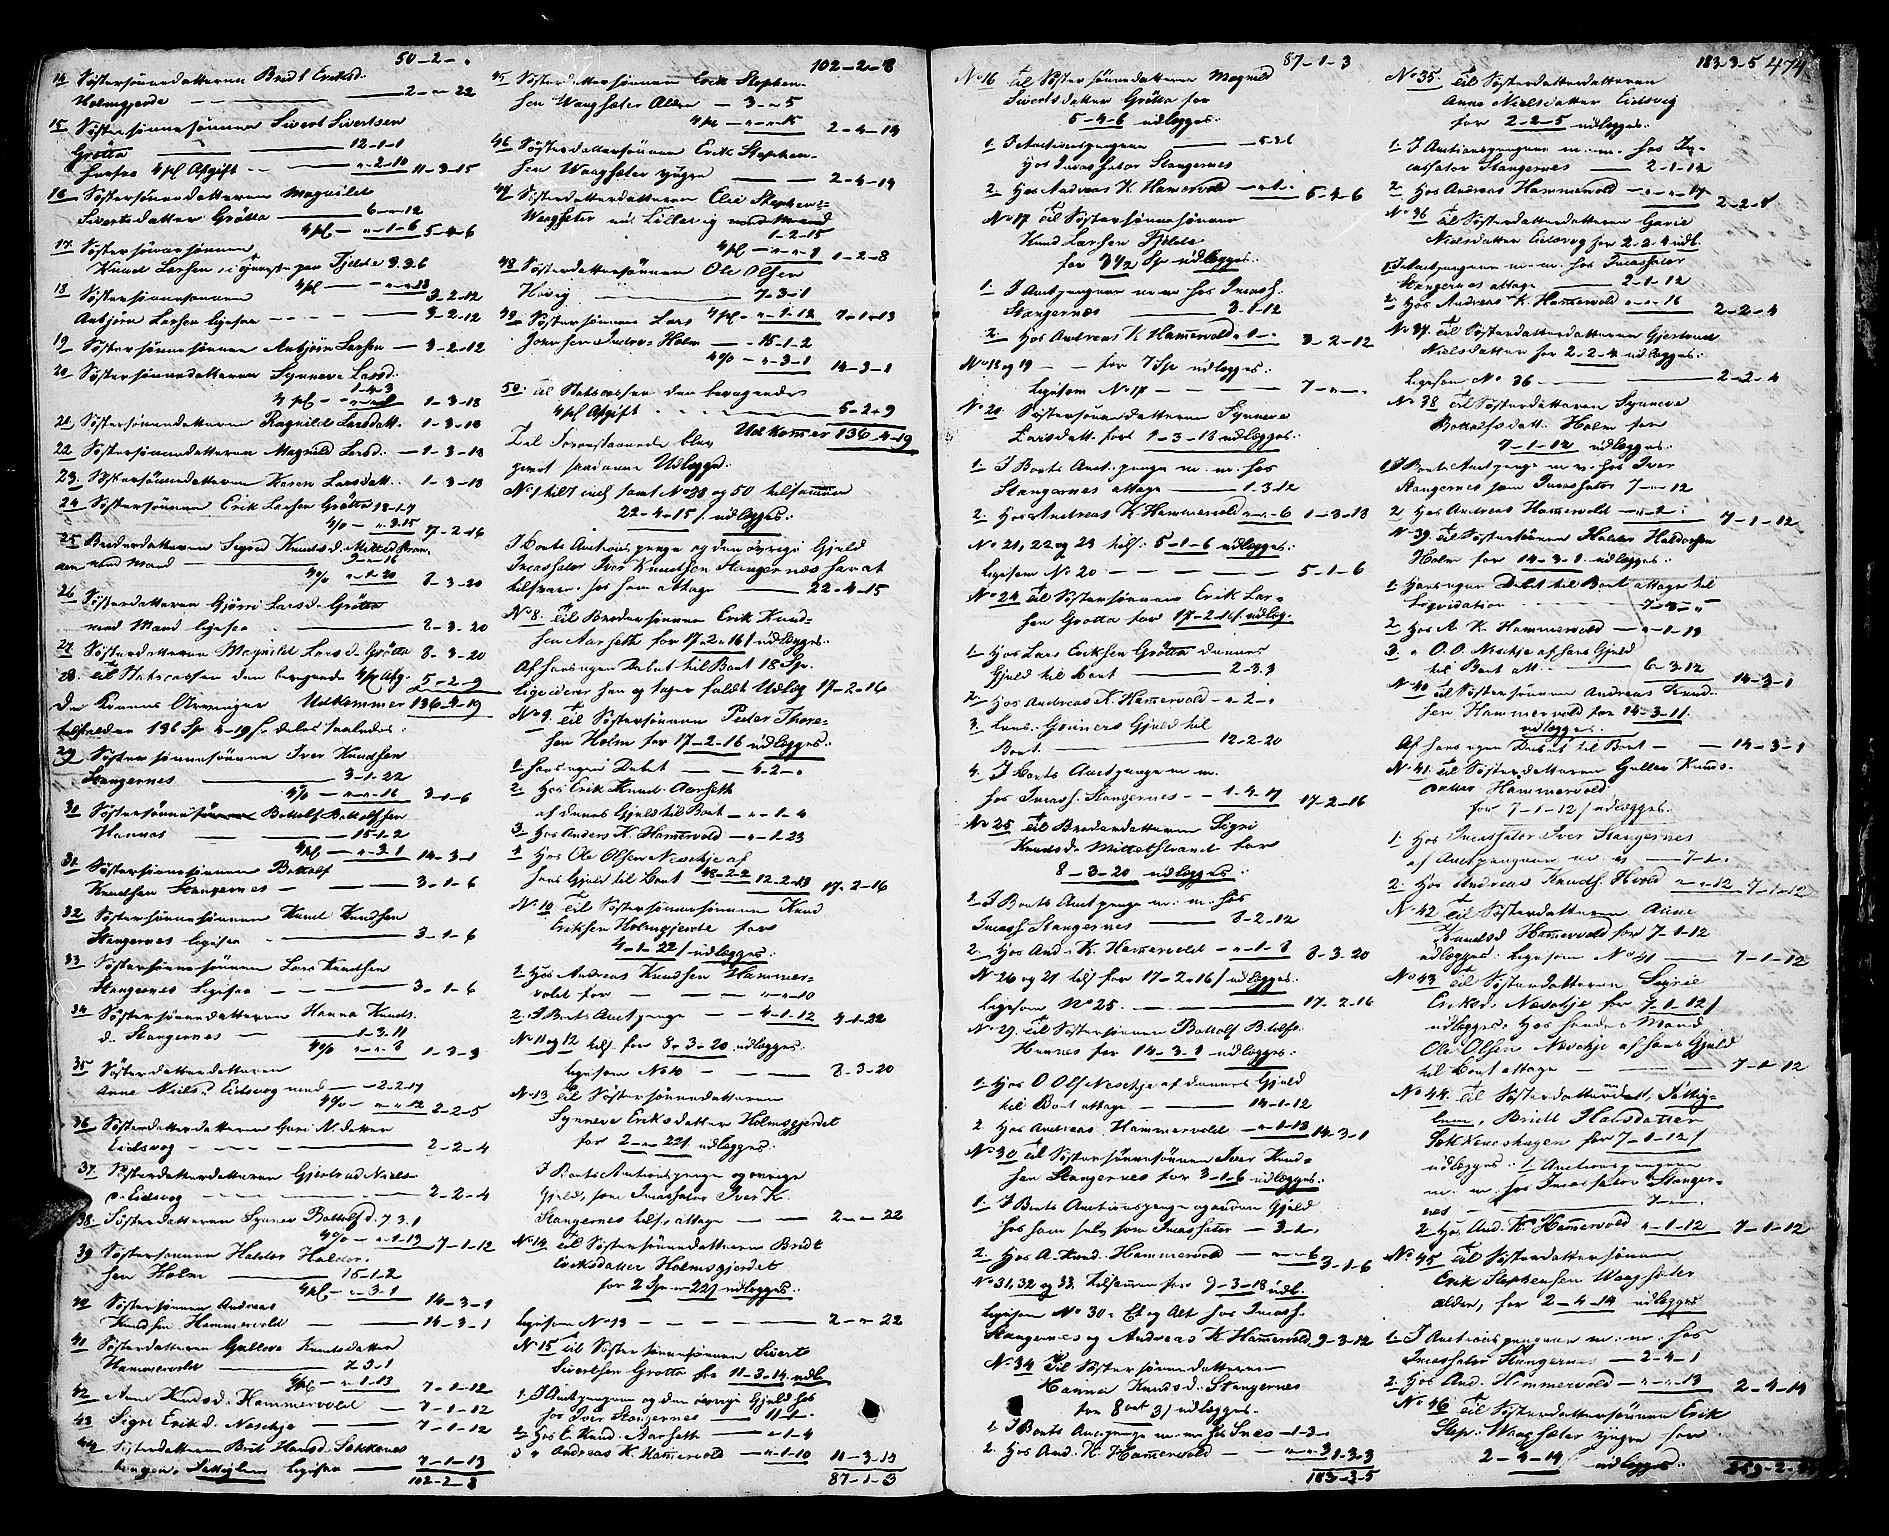 50-2-.
14 Søstersønnedatteren Brit Eriksd.
Holmgjerde — 2-"-22
15 Søstersønnesønnen Sivert Sivertsen
Grøtta — 12-1-1
4 pC Afgift — "-2-10 11-3-15
16 Søstersønnedatteren Magnild
Sivertsdatter Grøtta — 6-"-12
4 pC — "-1-6 5-4-6
17. Søstersønnesønnen
Knud Larsen i tjeneste paa Fjelde 3.3.6
4 pC — 3-2-12
18 Søstersønnesønnen
Anbjørn Larsen ligesaa — 3-2-12
19 Søstersønnesønnen Anbjørn Larsen — 3-2-12
20 Søstersønnedatteren Synneve Larsd.
4 pC — 1-3-18
21 Søstersønnedatteren Ragnild Larsdatt. 1-3-18
22 Søstersønnedatteren Magnild Larsd. — 1-3-18
23. Søstersønnedatteren Karen Larsdatt. 1-3-18
24 Søstersønnen Erik Larsen Grøtta 18-1-7
4 % — "-3-15 17-2-16
25 Broderdatteren Sigrid Knudsd. Mittelstran-
den med Mand — 9-"-16
4 % "-1-20 8-3-20
26 Søsterdatteren Gjøri Larsd. Grøtta
med Mand ligesaa — 8-3-20
27 Søsterdatteren Magnild Larsd. Grøtta 8-3-20
28. Til Statscassen den beregnede 4 pC Afg. 5-2-9
Udkommer 136-4-19
De Konens Arvinger
tilfaldne 136 Sp 4-19 s. deles saaledes:
29 Søstersønnesønnen Iver Knudsen
Stangernes — 3-1-22
4 % — "-"-16 3-1-6
30 Søstersønnen Bottolf Bottolfsen
Hannas — 15-1-2
4 pC — "-3-1 14-3-1
31. Søstersønnesønnen Bottolf
Knudsen Stangernes — 3-1-6
32 Søstersønnesønnen Knud Knudsen
Stangernes ligesaa — 3-1-6
33 Søstersønnesønnen Lars Knudsen
Stangernes ligesaa — 3-1-6
34 Søstersønnedatteren Hanna Knuds.
d. Stangernes — 1-3-11
4 % "-"-8 1-3-3
35 Søsterdatterdatteren
Anne Nielsd. Eidsvog med — 2-2-17
4 % — "-"-12 2-2-5
36 Søsterdatterdatteren Guri N.datter
Eidsvog — 2-2-4
37. Søsterdatterdatteren Gjertrud Niels-
d. Eidsvog — 2-2-4
38 Søsterdatteren Synnev Bottolfsd. 7-3-1
4 % — "-1-13 7-1-12
39 Søstersønnen Haldor Haldor-
sen Holm — 15-1-2
4 pC — "-3-1 14-3-1
40 Søstersønnen Andreas
Knudsen Hammervold — 14-3-1
41 Søsterdatteren Gullove Knudsdatter
Hammervold — 7.3.1
4 pC — "-1-13 7-1-12
42 Anne Knudsd. Hammervold — 7-1-12
43 Sigri Erikd. Neschje — 7-1-12
44 Søsterdatteren Brit Hansd. Sekkenes-
haugen, Fattiglem ligesaa — 7-1-13
102-2-8
102-2-8
45 Søsterdattersønnen Erik Stephen-
sen Waagsæter Ældre — 3-"-5
4 pC — "-"-15 2-4-14
46 Søsterdattersønnen Erik Stephen-
sen Waagsæter yngre — 2-4-14
47 Søsterdatterdatteren Olii Stephens:
Waagsæter
1-2-15
4 pC — "-"-7 1-2-8
48 Søsterdattersønnen Ole Olsen
Havig — 7-3-1
4 pC — "-1-12 7-1-13
49 Søstersønnen Lars
Johnsen Indre-Holm — 15-1-2
4 % — "-3-1 14-3-1
50. Til Statscassen den beregnede
4 pC Afgift — 5-2-9
Udkommer 136-4-19
Til Foranstaaende blev
gjort saadanne Udlægge.
No 1 til 7 incl. samt No 28 og 50 tilsammen
22-4-15 s. udlægges:
I Boets Auctions penge og den øvrige Gjeld
Incassator Iver Knudsen Stangernes har at
tilsvare, hos ham attage — 22-4-15
No 8. Til Brodersønnen Erik Knud-
sen Aarseth for 17-2-16 s udlægges:
Af hans egen Debet til Boet 18 Sp.
liqviderer han og tager fuldt Udlæg 17-2-16
No 9. Til Søstersønnen Peder Thore-
sen Holm for 17-2-16 udlægges:
1. hans egen Debet — 4-2-.
2. Hos Erik Knuds. Aarseth
af dennes Gjeld til Boet — "-1-4
3. Hos Anders K. Hamervold — "-1-23
4 Hos Ole Olsen Neschje af
hans Gjeld til Boet 12-2-13 17-2-16
No 10 Til Søstersønnesønnen Knud
Eriksen Holmsgjerde for
4-1-22 s udlægges:
1. Hos Andreas Knudsen Hammer-
vold for — "-"-10
2. I Boets Auct. penge — 4-1-12 4-1-22
No 11 og 12 tils. for 8-3-20 udlægges:
ligesom No 10 — 8-3-20
No 13 Til Søstersønnedatteren
Synneve Eriksdatter Holmsgjerdet
for 2-"-22 s. udlægges:
I Boets Auctionspenge og øvrige
Gjeld, som Incassator Iver K.
Stangernes tils. attage — 2-"-22
No 14 Til Søstersønnedatteren Bridt
Eriksdatter Holmsgjerdet
for 2 Sp "-22 s udlægges:
ligesom No 13 — 2-"-22
No 15 Til Søstersønnesønnen Sivert
Sivertsen Grøtta for 11-3-14 udl.
1. I Auct. pengene og den øvrige Gjeld hos
hos Iver Stangernes — 11-1-.
2. Hos E. Knud. Aarseth — "-1-4
3 " Andreas K. Hamervold — "-1-10 11-3-15
87-1-3
87-1-3
No 16 Til Søstersønnedatteren Magnild
Sivertsdatter Grøtta for
5-4-6 udlægges:
1. I Auctionspengene — 5-3-6
hos Incassator Stangernes
2. Hos Andreas K. Hamervold — "-1-. 5-4-6
No 17 Til Søstersønnesønnen
Knud Larsen Fjelde
for 3½ Sp udlægges:
1. I Auct. pengene m.m. hos Incass.
Stangernes — 3-1-12
2. Hos Andreas K. Hamervold "-1-. 3-2-12
No 18 og 19 — for 7 Sp udlægges:
ligesom No 17 — 7-"-.
No 20 Søstersønnedatteren Synneve
Larsdatt. for 1-3-18 udlægges:
1. I Boets Auct. penge m.m. hos
Stangernes attage — 1-3-12
2. Hos Andreas K. Hamervold "-"-6 1-3-18
No 21, 22 og 23 tils. 5-1-6 udlægges:
ligesom No 20 — 5-1-6
No 24 Til Søstersønnen Erik Lar-
sen Grøtta for 17-2-16 s udlæg.
1. Hos Lars Eriksen Grøtta dennes
Gjeld til Boet — 2-3-3
2. Hos Andreas K. Hamervold — "-2-.
3. Gjeld til
Boet — 12-2-20
4. I Boets Auct. penge m.m.
hos Incass. Stangernes — 1-4-17 17-2-16
No 25 Til Broderdatteren Sigri
Knudsd. Mittelstrand for
8-3-20 udlægges:
1. I Boets Auct. penge m.m. hos
Incass. Stangernes — 8-2-12
2. Hos And. K. Hamervold — "-1-8 8-3-20
No 26 og 27 tils for 17-2-16 s udlægges:
ligesom No 25 — 17-2-16
No 29 Til Søstersønnen Bottolf B.tolfs.
Hannes for 14-3-1 udlægges:
1. Hos O Ols Neschje af dennes Gjeld
til Boet attage — 14-1-12
2 Hos Andreas Hammervold — "-1-13 14-3-1
No 30 Til Søstersønnesønnen Iver Knud-
sen Stangernes for 3-1-6 udlægges:
1. I Boets Auctionspenge og anden Gjeld
hos ham selv som Incassator — 3-1-.
2. Hos A. Knud. Hammervold — "-"-6 3-1-6
No 31, 32 og 33 tilsamen for 9-3-18 udl.
ligesom No 30. Et og Alt hos Incass.
Stangernes og Andreas K. Hamervold 9-3-12
No 34 Til Søstersønnedatteren
Hanna Knudsd. Stangernes
for 8 ort 3 s udlægges.
1. I Boets Auct. penge m.m. hos — 1-3-.
2. Hos And. K. Hamervold — "-"-3 1-3-3
183-3-5
183-3-5 474
No 35. Til Søsterdatterdatteren
Anne Nielsdatter Eidsvig
for 2-2-5 udlægges:
1. I Auctionspengene m.m. hos In-
cassator Stangernes — 2-1-12
2 Hos Andreas Hammervold — "-"-17 2-2-5
No 36 Til Søsterdatterdatteren Gurie
Nielsdatter Eidsvog for 2-2-4 udl.
1. I Auct. pengene m.m. hos Incassator
Stangernes attage — 2-1-12
2. Hos Andreas K. Hamervold "-"-16 2-2-4
No 37 Til Søsterdatterdatteren Gjertrud
Nielsdatter for 2-2-4 udlægges:
ligesom No 36 — 2-2-4
No 38 Til Søsterdatteren Synneve
Bottolfsdatt. Holm for
7-1-12 udlægges:
1. I Boets Auct. penge m.m. hos Iver
Stangernes som Incassator 7-"-12
2 Hos Andreas Hamervold — "-2-. 7-1-12
No 39 Til Søstersønnen Haldor Haldorsen
Holm for 14-3-1 udlægges:
1. Hans egen Debet til Boet attage til
Liqvidation
2. Hos A. K. Hammervold — "-1-13
3. " O. O. Neschje af hans Gjeld
til Boet att. — 6-3-12 14-3-1
No 40 Til Søstersønnen Andreas Knud-
sen Hammervold for 14-3-1 s.
udlægges:
Af hans egen Debet til Boet — 14-3-1
No 41. Til Søsterdatteren Gullov Knuds-
datter Hammervold
for 7-1-12 s udlægges:
1. Hos Incassator Iver Stangernes
af Auct. pengene m.m. — 7-1-.
2. Hos Andreas Knuds. H.vold "-"-12 7-1-12
No 42 Til Søsterdatteren Anne
Knudsd Hamervold for 7-1-12
udlægges: ligesom No 41 — 7-1-12
No 43 Til Søsterdatteren Sigrie
Eriksd. Neschje for 7-1-12 s
udlægges: Hos hendes Mand
Ole Olsen Neschje af hans Gjeld
til Boet attage — 7-1-12
No 44. Til Søsterdatteren, Fattig-
lem, Bridt Hansdatter
Sekkeneshugen for 7-1-12 s
udlægges: 1. I Auctionspengene
m.m. hos Incassator Stanger-
nes — 7-"-
2. Hos And. K. Hamervold "-1-12 7-1-12
No 45 Til Søsterdattersønnen
Erik Stephensen Waagsæter
ælder, for 2-4-14 udlægges
1. I Auctionspengene m.m. hos
Incassator Stangernes — 2-4-1
2. Hos And. Hammervold — "-"-13 2-4-14
No 46 Til Søsterdattersønnen Erik
Step. Waagsæter yngre for
2-4-14 udlægges: